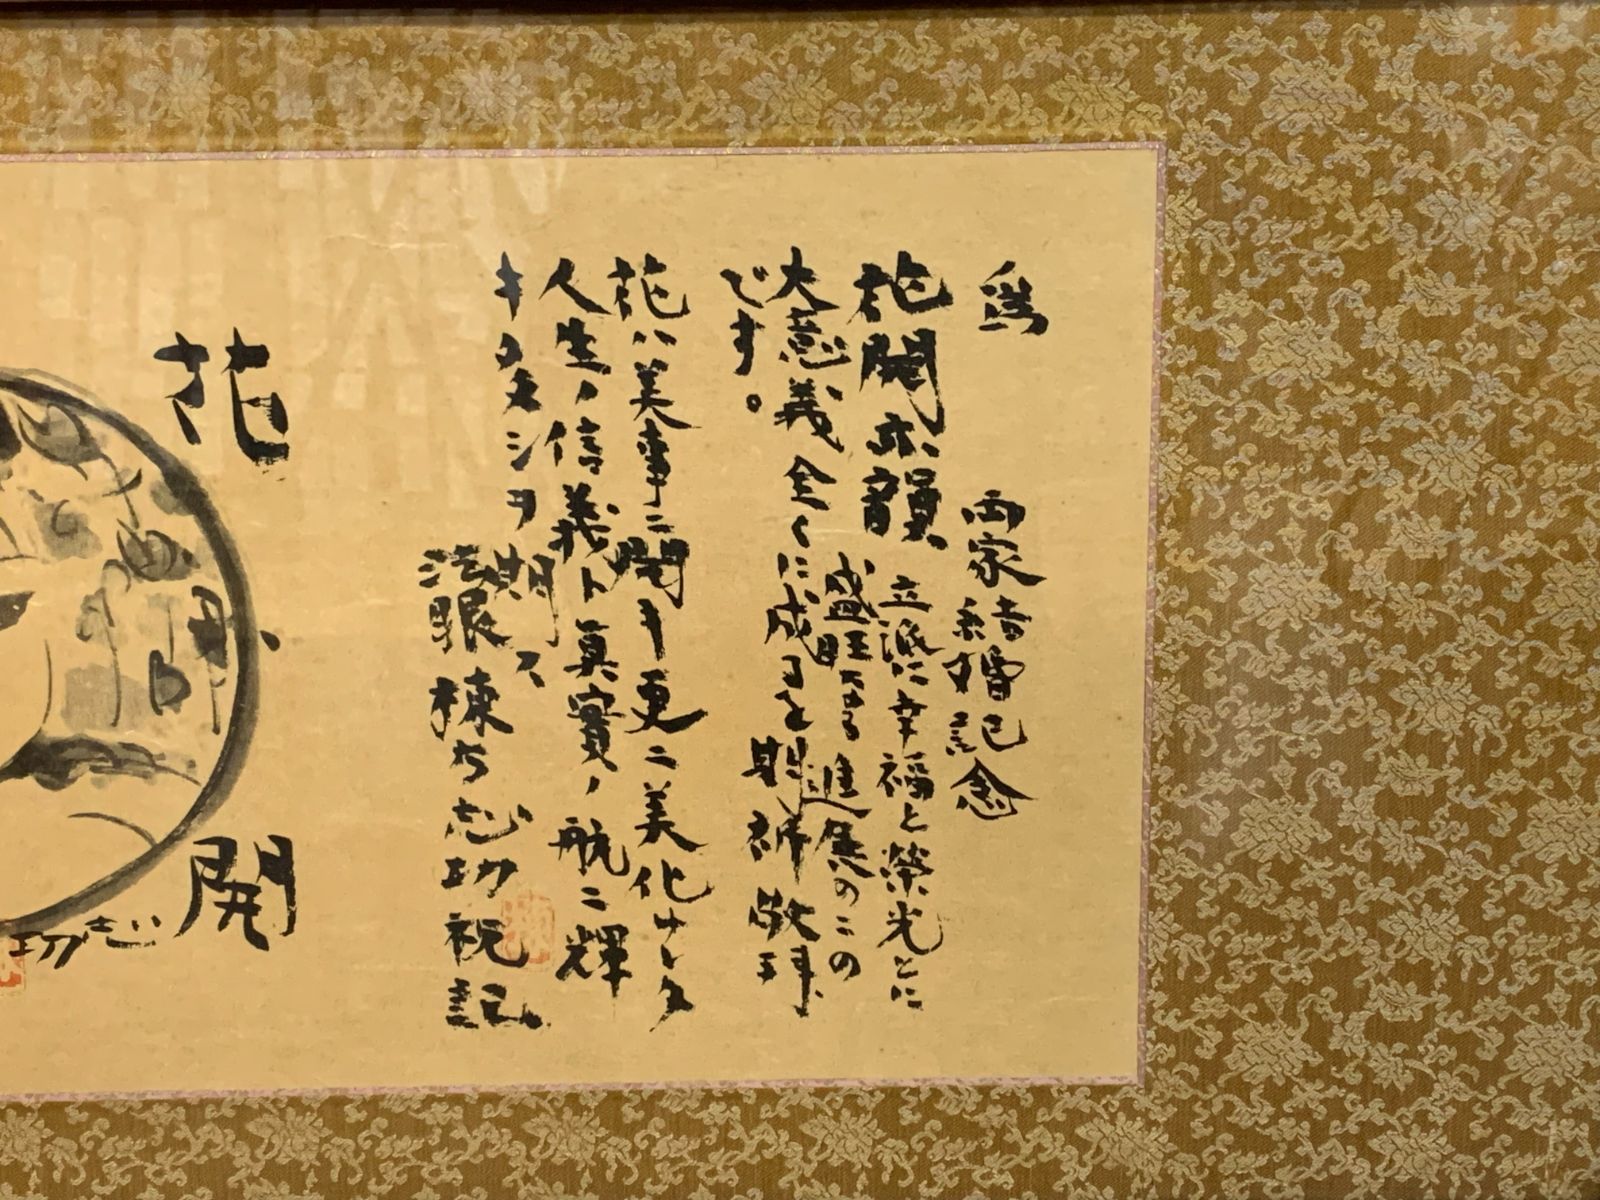 為
両家皆嘗已
結婚記念
花開六韻 立派に幸福と榮光とに
盛旺なる進展のこの
大意義全くに成るを期祈敬拝
です。
花ハ美事ニ開キ更ニ美化ナシタ
人生ノ信義ト真實ノ航ニ輝
キタマシヲ期ス
法眼棟方志功祝記
花
開
志功